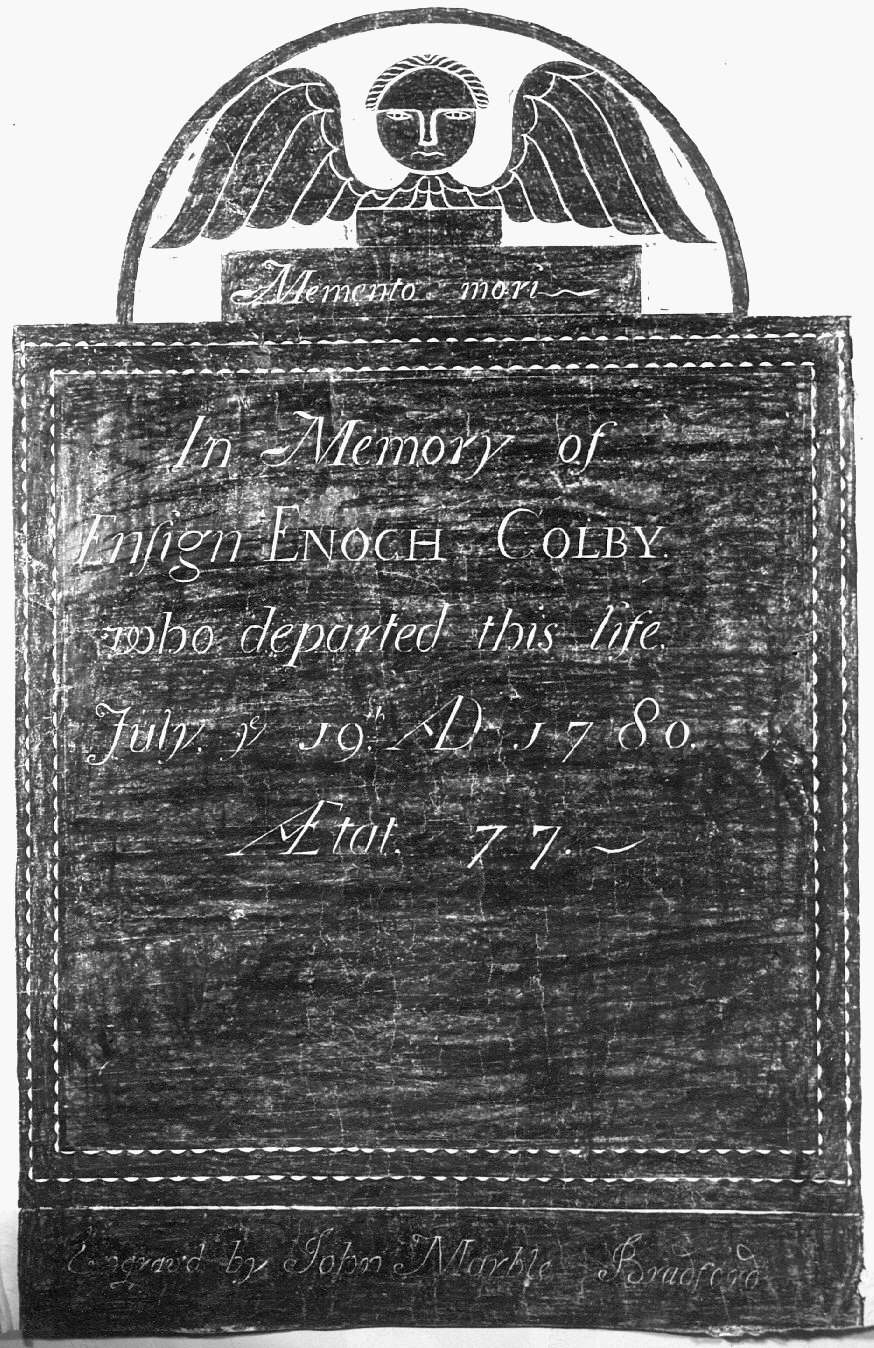 Memento mori
In Memory of
Enſign ENOCH COLBY.
who departed this life.
July, yͤ 19th. AD 1780.
Ætat. 77.
Engrav'd by John Marble Bradford